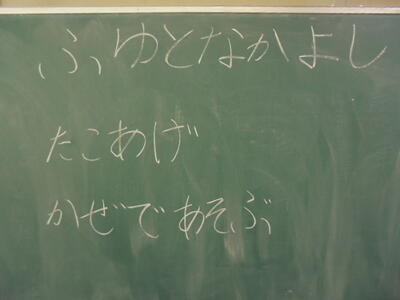 ふゆとなかよし
たこあげ
かぜであそぶ